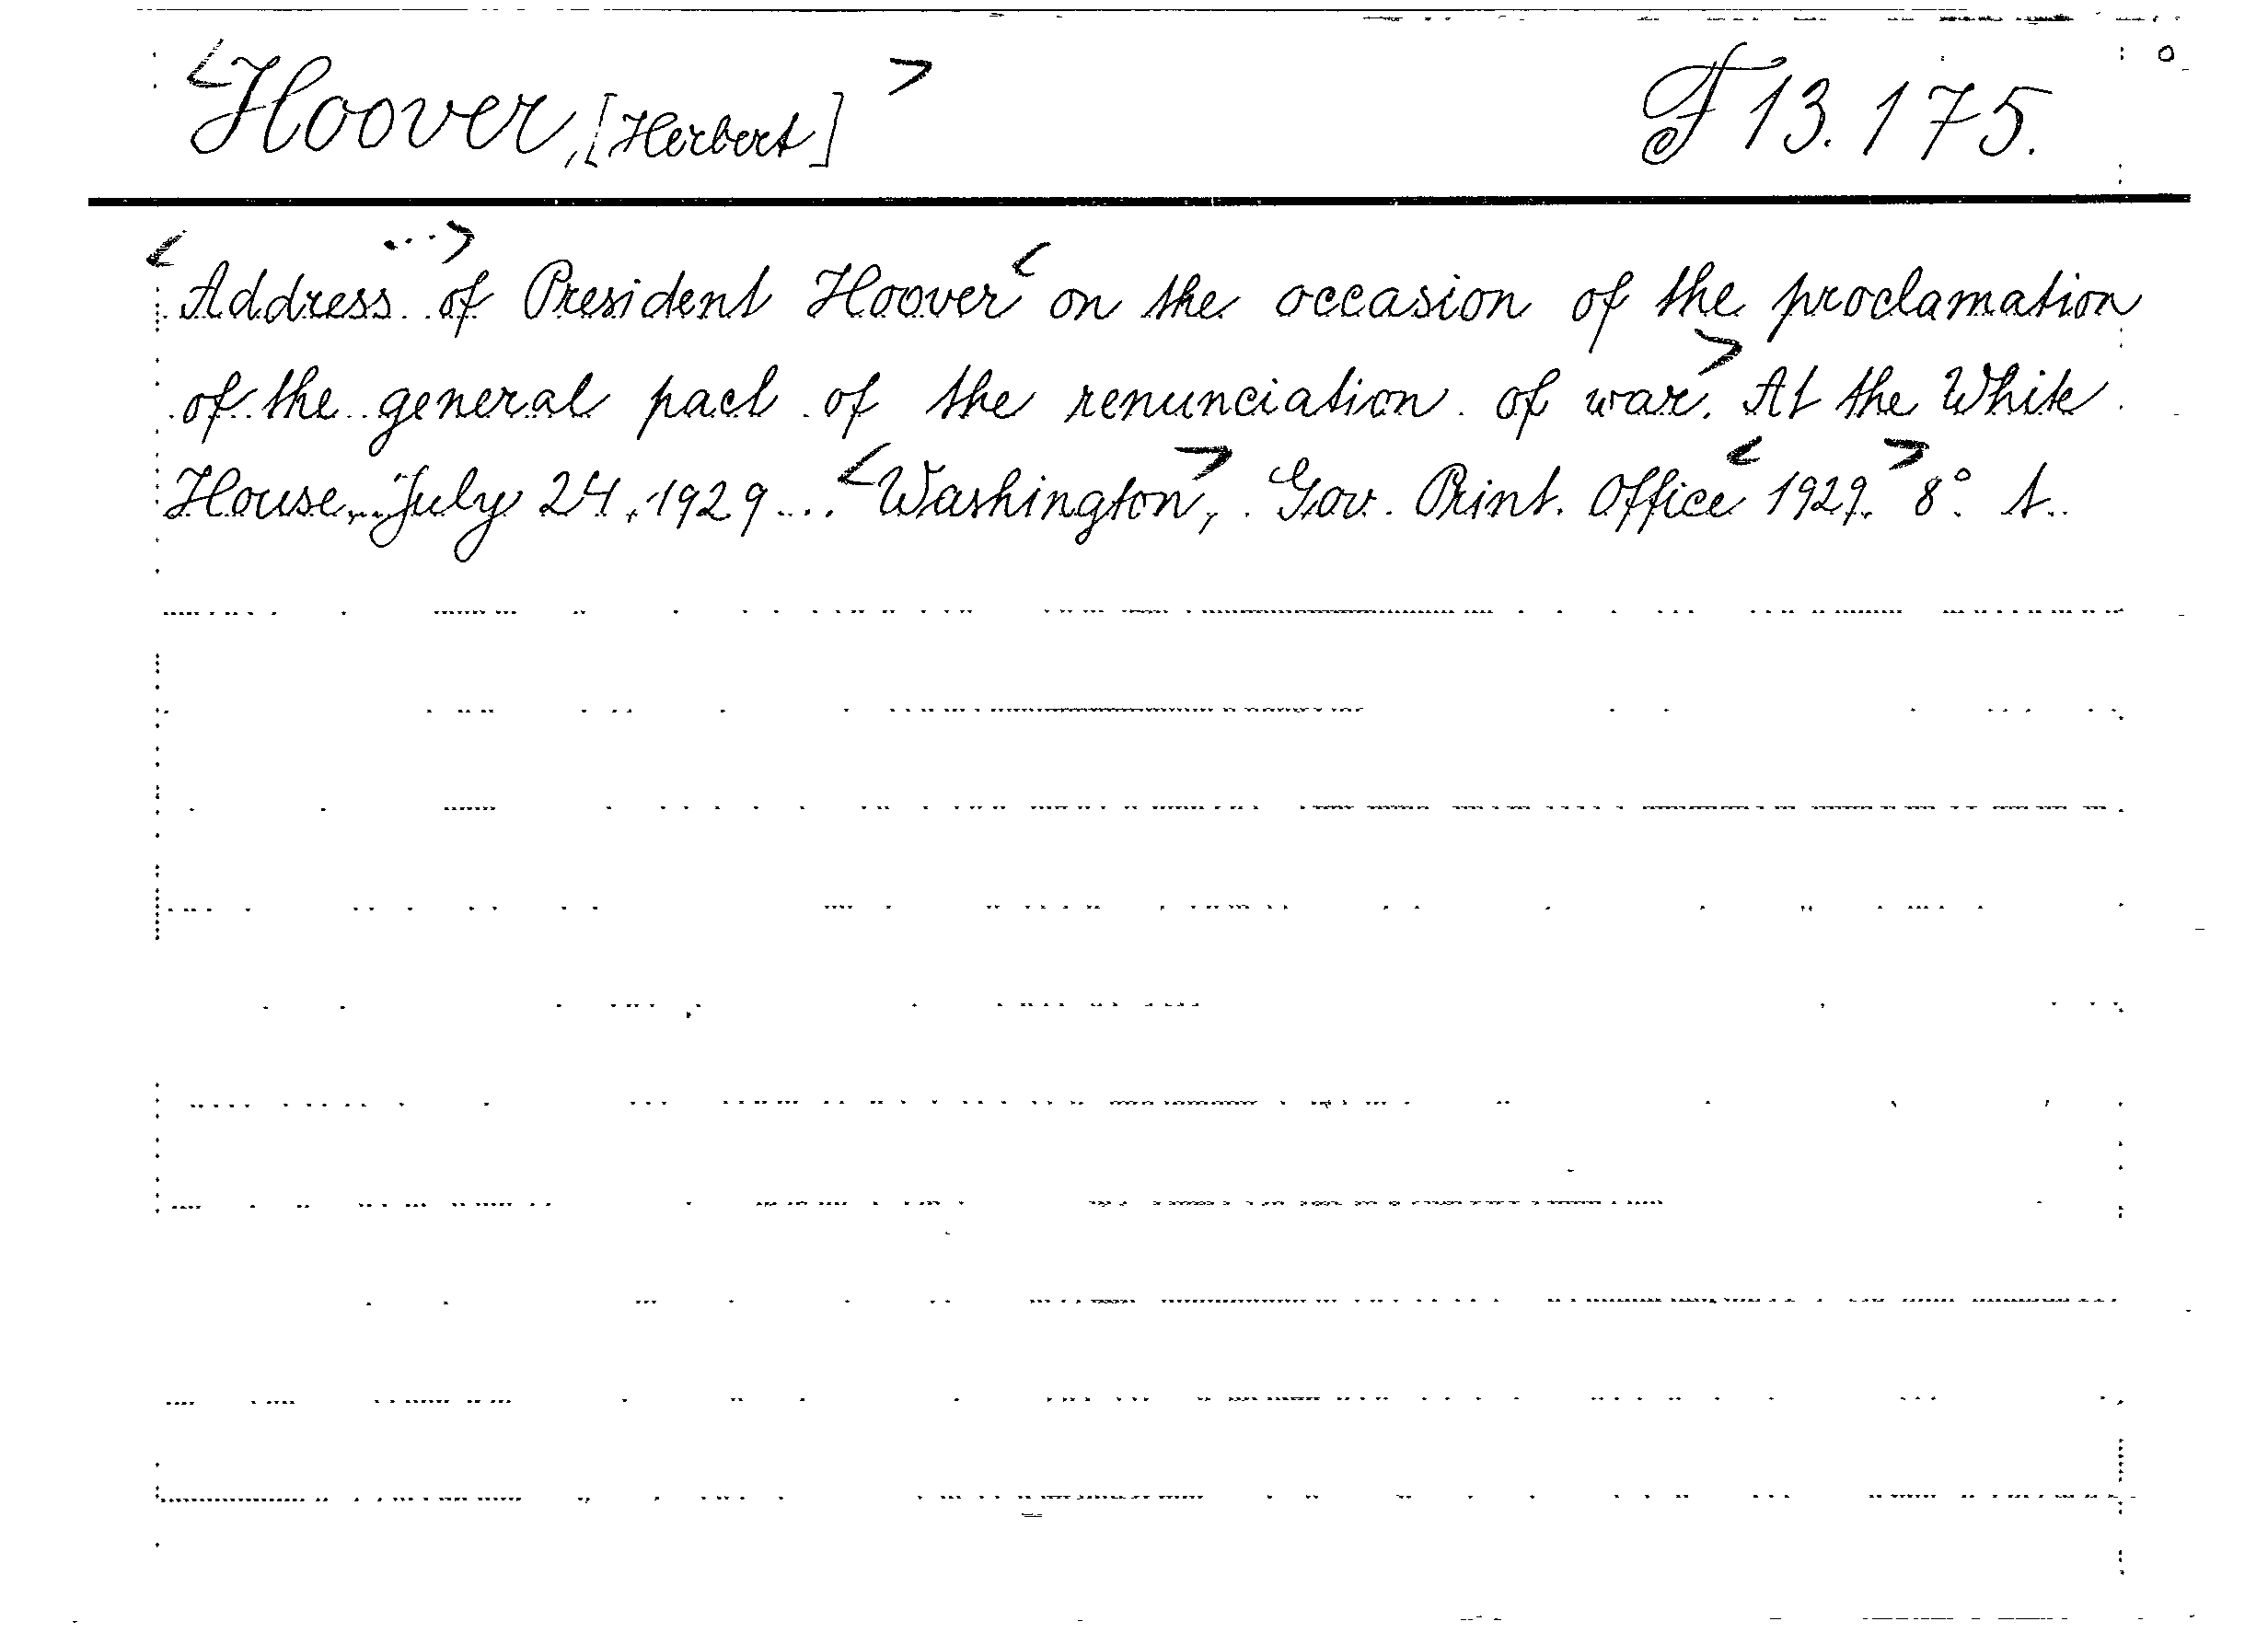 <Hoover, [Herbert]> F 13.175.
<Address ...> of President Hoover < on the occasion of the proclamation
of the general pact of the renunciation of war.> At the White
House, July 24, 1929... <Washington>, Gov. Print. Office <1929.> 8° t.